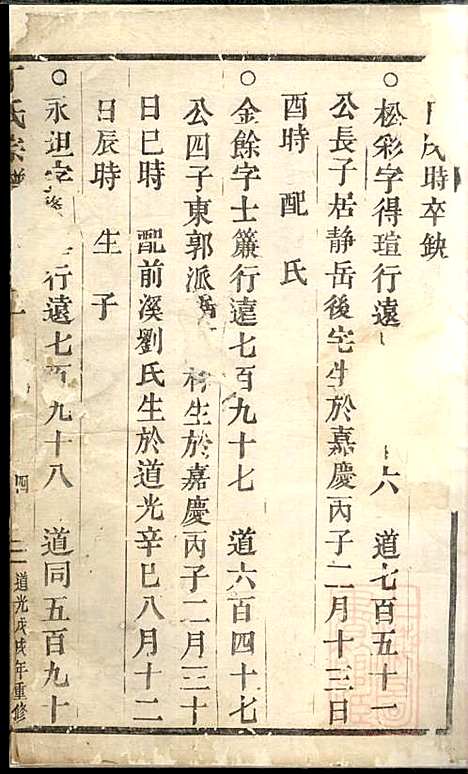 戌時卒缺
○松彩字得瑄行遠六 道七百五十一
公長子居靜岳後宅生於嘉慶丙子二月十三日
酉時 配 氏
○金餘字士簾行遠七百九十七 道六百四十七
公四子東郭派 生於嘉慶丙子二月三十
日巳時 配前溪劉氏生於道光辛巳八月十二
日辰時 生 子
○永 字 行遠七百九十八 道同五百九十
氏宗譜 四
道光戊戌年重修